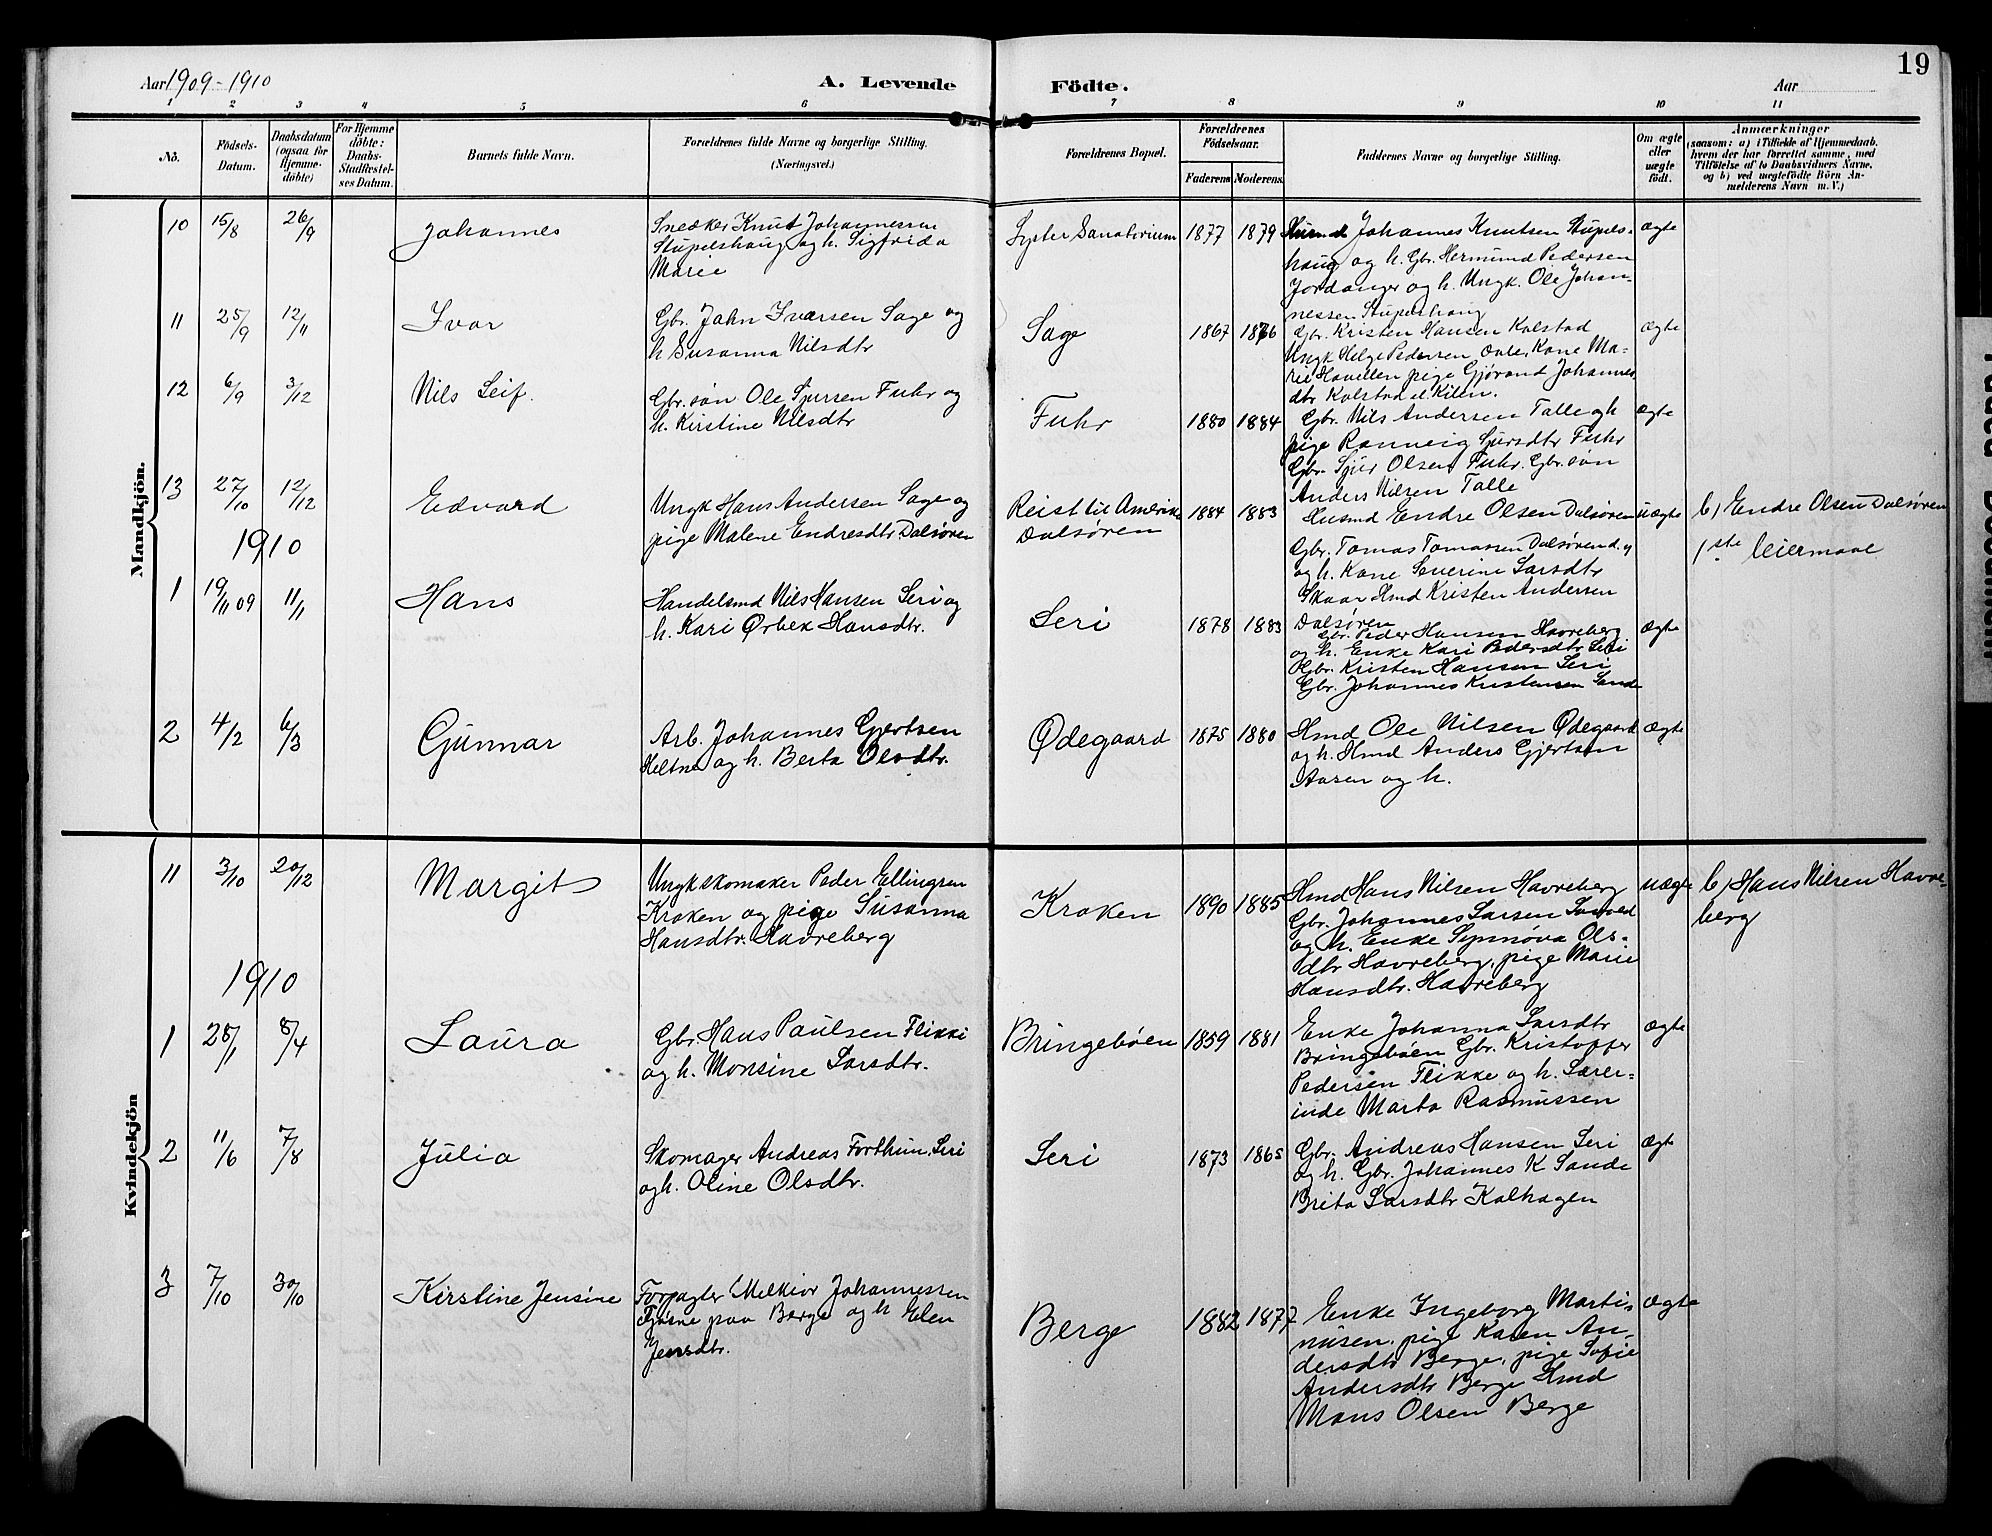 19
Aar 1909-1910
A. Levende Födte.
Aar
1 2 3 4 5 6 7 8 9 10 11
No.
Födsels-Datum.
Daabsdatum (ogsaa for Hjemme-döbte)
For Hjemme döbte: Daabs-Stadfæstel-ses Datum.
Barnets fulde Navn.
Forældrenes fulde Navne og borgerlige Stilling. (Næringsvei.)
Forældrenes Bopæl.
Forældrenes Födselsaar.
Faderens Moderens
Faddernes Navne og borgerlige Stilling.
Om ægte eller uægte födt.
Anmærkninger (saasom: a) i Tilfælde af Hjemmedaab, hvem der har forrettet samme, med Tilföielse af to Daabsvidners Navne, og b) ved uægtefödte Börn An-melderens Navn m. V.)
Mandkjön.
10 15/8 26/9 Johannes
Snedker Knut Johannessen
Stupelshaug og h. Sigfrida
Marie
Lyster Sanatorium 1877 1879
Husmd Johannes Knutsen Stupels-
haug og h. Gbr. Hermund Pedersen
Jordanger og h. Ungk. Ole Johan-
nessen Stupelshaug
ægte
11 25/9 12/11 Ivar
Gbr. John Ivarsen Sage og
h Susanna Nilsdtr
Sage 1867 1876
Gbr. Kristen Hansen Kolstad
Ungk Helge Pedersen Kone Ma-
rie pige Gjørond Johannes
dtr Kolstad el. Kilen.
ægte
12 6/9 3/12 Nils Leif.
Gbr. søn Ole Sjursen Fuhr og
h. Kirstine Nilsdtr
Fuhr 1880 1884
Gbr. Nils Andersen Talle og h
pige Ranneig Sjursdtr Fuhr
Gbr. Sjur Olsen Fuhr. Gbr. søn
Anders Nilsen Talle
ægte
13 27/10 12/12 Edvard
Ungk Hans Andersen Sage og
pige Malene Endresdtr Dalsøren
Reist til Amerika
Dalsøren
1884 1883
Husmd Endre Olsen Dalsøren
Gbr. Tomas Tomassen Dalsøren
og h. Kone Severine Larsdtr
Skaar Hmd Kristen Andersen
Dalsøren
uægte
b, Endre Olsen Dalsøren
1ste leiermaal
1910
1 19/11 09 11/1 Hans
Handelsmd Nils Hansen Leri og
h. Kari Ørbek Hansdtr.
Leri 1878 1883
Gbr. Peder Hansen Havreberg
og h. Enke Kari Pedersdtr Leri
Gbr. Kristen Hansen Leri
Gbr. Johannes Kristensen Sande
ægte
2 4/2 6/3 Gunnar
Arb. Johannes Gjertsen
Heltne og h. Berta Olsdtr.
Ødegaard 1875 1880
Hmd Ole Nilsen Ødegaard
og h. Hmd Anders Gjertsen
Aasen og h.
ægte
Kvindekjön
11 3/10 20/12 Margit
Ungk skomaker Peder Ellingsen
Kroken og pige Susanna
Hansdtr. Havreberg
Kroken 1890 1885
Hmd Hans Nilsen Havreberg
Gbr. Johannes Larsen
og h. Enke Synnøva Ols-
dtr Havreberg, pige Marie
Hansdtr. Havreberg
uægte
b, Hans Nilsen Havre-
berg
1910
1 25/1 8/4 Laura
Gbr. Hans Paulsen Flikki
og h. Monsine Larsdtr.
Bringebøen 1859 1881
Enke Johanna Larsdtr
Bringebøen Gbr. Kristoffer
Pedersen Flikke og h. Lærer-
inde Marta Rasmussen
ægte
2 11/6 7/8 Julia
Skomager Andreas Forthun, Leri
og h. Oline Olsdtr.
Leri 1873 1865
Gbr. Andreas Hansen Leri
og h. Gbr. Johannes K Sande
Brita Larsdtr Kalhagen
ægte
3 7/10 30/10 Kirstine Jensine
Forpagter Melkior Johannessen
Fjøsne paa Berge og h Elen
Jensdtr.
Berge 1882 1877
Enke Ingeborg Marti-
nusen, pige Karen An-
dersdtr Berge, pige Sofie
Andersdtr Berge Hmd
Mons Olsen Berge
ægte